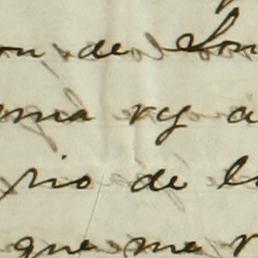 on de Son
ema ry a
rio de lo
que me r